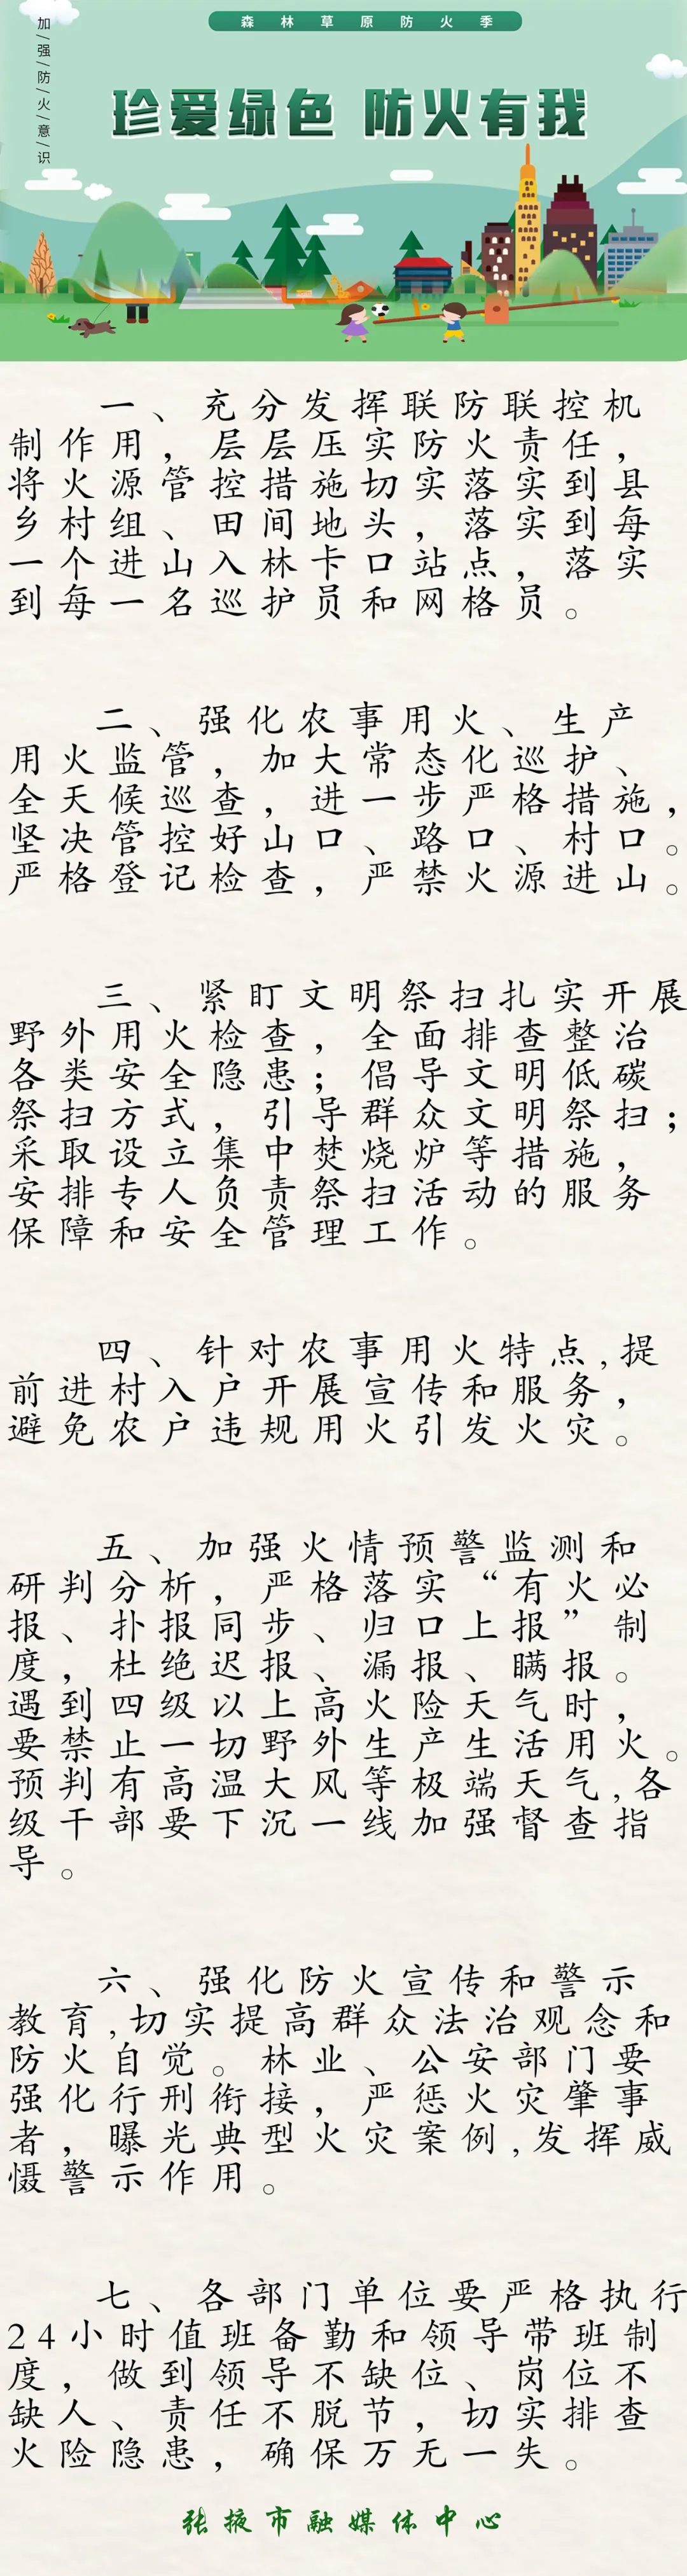 森林草原防火季
加/强/防/火/意/识
珍爱绿色 防火有我
一、充分发挥联防联控机
制作用，层层压实防火责任，
将火源管控措施切实落实到县
乡村组、田间地头，落实到每
一个进山入林卡口站点，落实
到每一名巡护员和网格员。
二、强化农事用火、生产
用火监管，加大常态化巡护、
全天候巡查，进一步严格措施，
坚决管控好山口、路口、村口。
严格登记检查，严禁火源进山。
三、紧盯文明祭扫扎实开展
野外用火检查，全面排查整治
各类安全隐患；倡导文明低碳
祭扫方式，引导群众文明祭扫；
采取设立集中焚烧炉等措施，
安排专人负责祭扫活动的服务
保障和安全管理工作。
四、针对农事用火特点,提
前进村入户开展宣传和服务，
避免农户违规用火引发火灾。
五、加强火情预警监测和
研判分析，严格落实“有火必
报、扑报同步、归口上报”制
度，杜绝迟报、漏报、瞒报。
遇到四级以上高火险天气时，
要禁止一切野外生产生活用火。
预判有高温大风等极端天气,各
级干部要下沉一线加强督查指
导。
六、强化防火宣传和警示
教育,切实提高群众法治观念和
防火自觉。林业、公安部门要
强化行刑衔接，严惩火灾肇事
者，曝光典型火灾案例,发挥威
慑警示作用。
七、各部门单位要严格执行
24小时值班备勤和领导带班制
度，做到领导不缺位、岗位不
缺人、责任不脱节，切实排查
火险隐患，确保万无一失。
张掖市融媒体中心